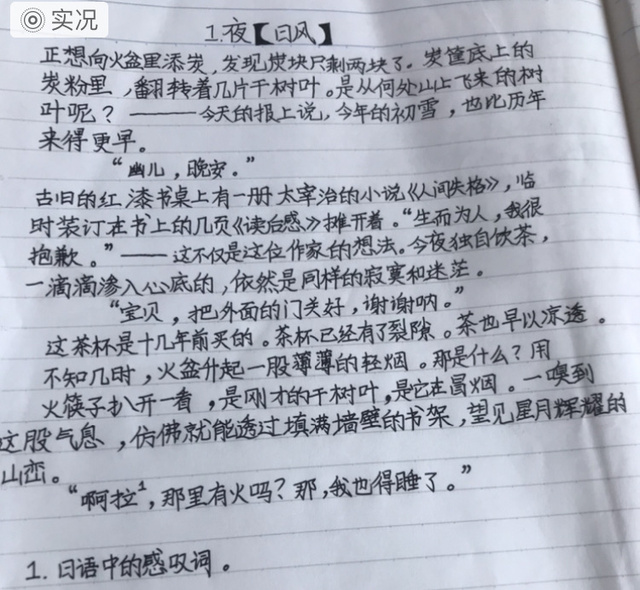 实况
1.夜【日风】
正想向火盆里添炭，发现炭块只剩两块了。炭筐底上的
炭粉里，翻转着几片干树叶。是从何处山上飞来的树
叶呢？———今天的报上说，今年的初雪，也比历年
来得更早。
“幽儿，晚安。”
古旧的红漆书桌上有一册太宰治的小说《人间失格》，临
时装订在书上的几页《读后感》摊开着。“生而为人，我很
抱歉。”——这不仅是这位作家的想法。今夜独自饮茶，
一滴滴渗入心底的，依然是同样的寂寞和迷茫。
“宝贝，把外面的门关好，谢谢呐。”
这茶杯是十几年前买的。茶杯已经有了裂隙。茶也早以凉透。
不知几时，火盆升起一股薄薄的轻烟。那是什么？用
火筷子扒开一看，是刚才的干树叶，是它在冒烟。一嗅到
这股气息，仿佛就能透过填满墙壁的书架，望见星月辉耀的
山峦。
“啊拉1，那里有火吗？那，我也得睡了。”
1. 日语中的感叹词。